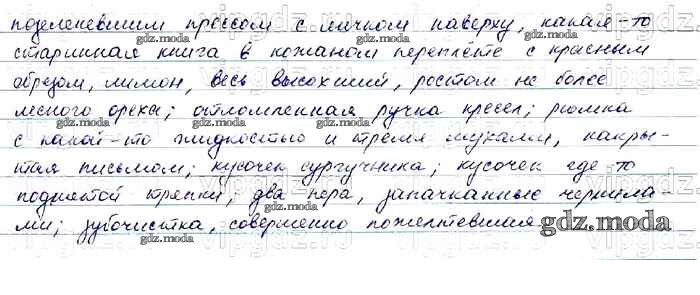 позеленевшим прессом с яичком наверху, какая-то
старинная книга в кожаном переплёте с красным
обрезом, лимон, весь высохший, ростом не более
лесного ореха; отломленная ручка кресел; рюмка
с какой-то жидкостью и тремя мухами, накры-
тая письмом; кусочек сургучика; кусочек где-то
поднятой тряпки; два пера, запачканные чернила-
ми; зубочистка, совершенно пожелтевшая
gdz.moda